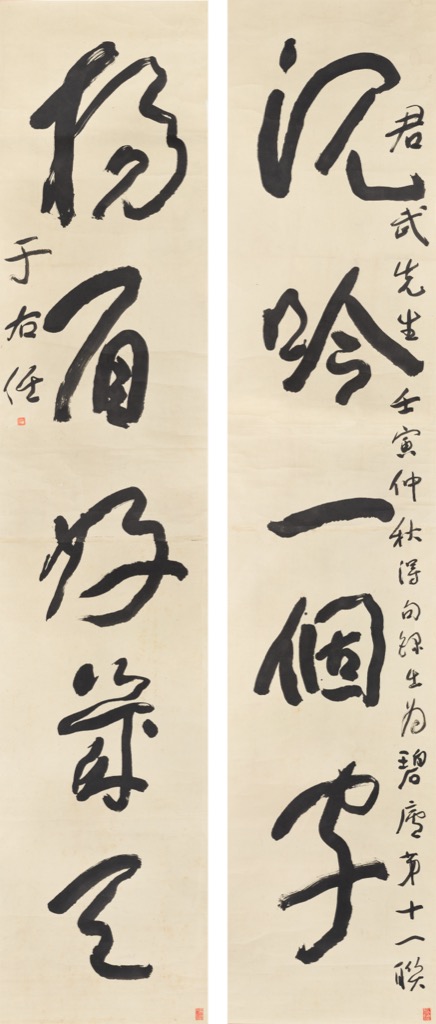 君武先生壬寅仲秋得句錄出為碧廬第十一聯
沈吟一個字
揚眉好幾天
于右任